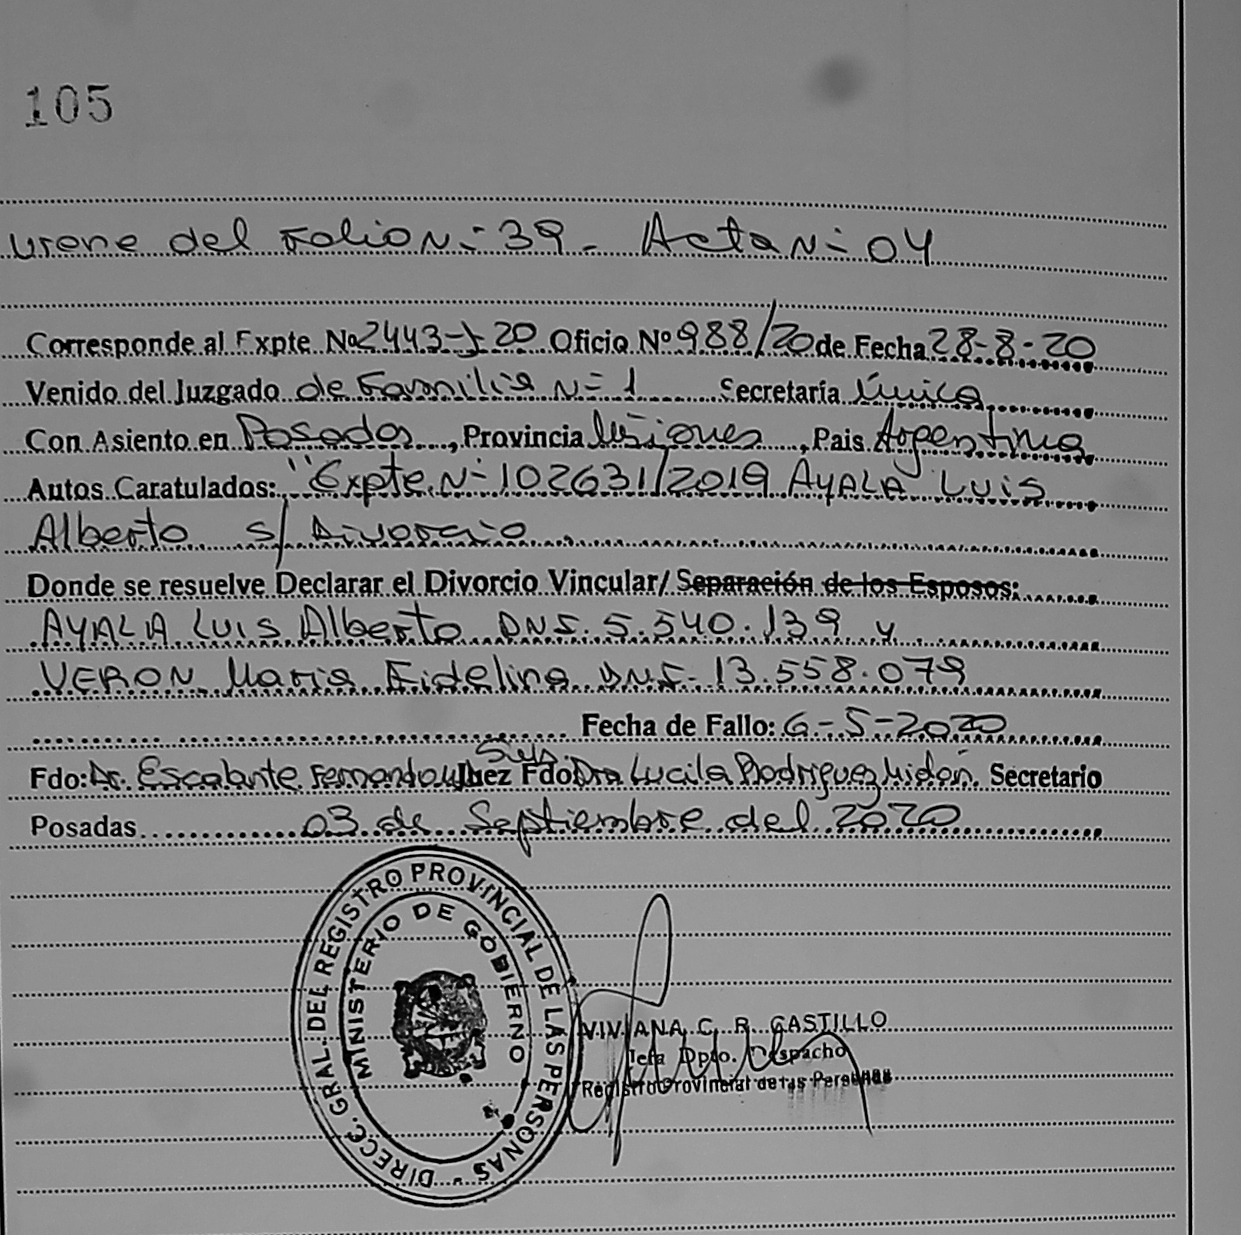 105
Viene del Folio N- 39 - Acta N- 04
Corresponde al Expte Nº 2443-J-20 Oficio Nº 988/20 de Fecha 28-8-20
Venido del Juzgado de Familia N- 1 Secretaría Única
Con Asiento en Posadas, Provincia Misiones, Pais Argentina
Autos Caratulados: "Expte N- 102631/2019 AYALA LUIS
Alberto s/ Divorcio
Donde se resuelve Declarar el Divorcio Vincular/ Separación de los Esposos:
AYALA LUIS Alberto DNI. 5.540.139 y
VERON Maria Fidelina DNI- 13.558.079
Fecha de Fallo: 6-5-2020
Fdo: Dr. Escalante Fernando Juez Fdo Dra Lucila Rodriguez Midón Secretario
Posadas 03 de Septiembre del 2020
DIRECC. GRAL. DEL REGISTRO PROVINCIAL DE LAS PERSONAS
MINISTERIO DE GOBIERNO
VIVIANA C. R. CASTILLO
Jefa Dpto. Despacho
Registro Provincial de las Personas